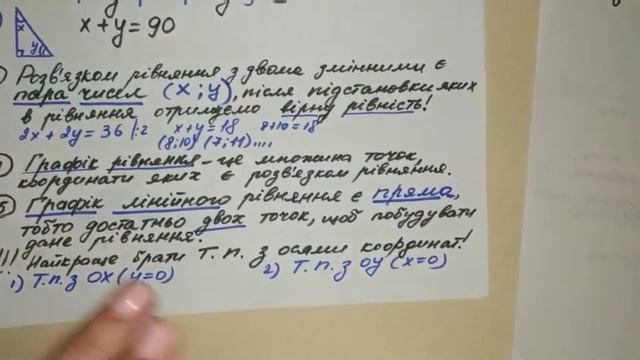 x
y
x + y = 90
Розв'язком рівняння з двома змінними є
пара чисел (x ; y), після підстановки яких
в рівняння отримуємо вірну рівність!
2x + 2y = 36 |:2 x + y = 18 8+10=18
(8;10) (7;11)....
Графік рівняння - це множина точок,
координати яких є розв'язком рівняння.
5 Графік лінійного рівняння є пряма,
тобто достатньо двох точок, щоб побудувати
дане рівняння.
!!! Найкраще брати т. п. з осями координат!
1) Т.п. з OX (y=0) 2) Т.п. з OY (x=0)